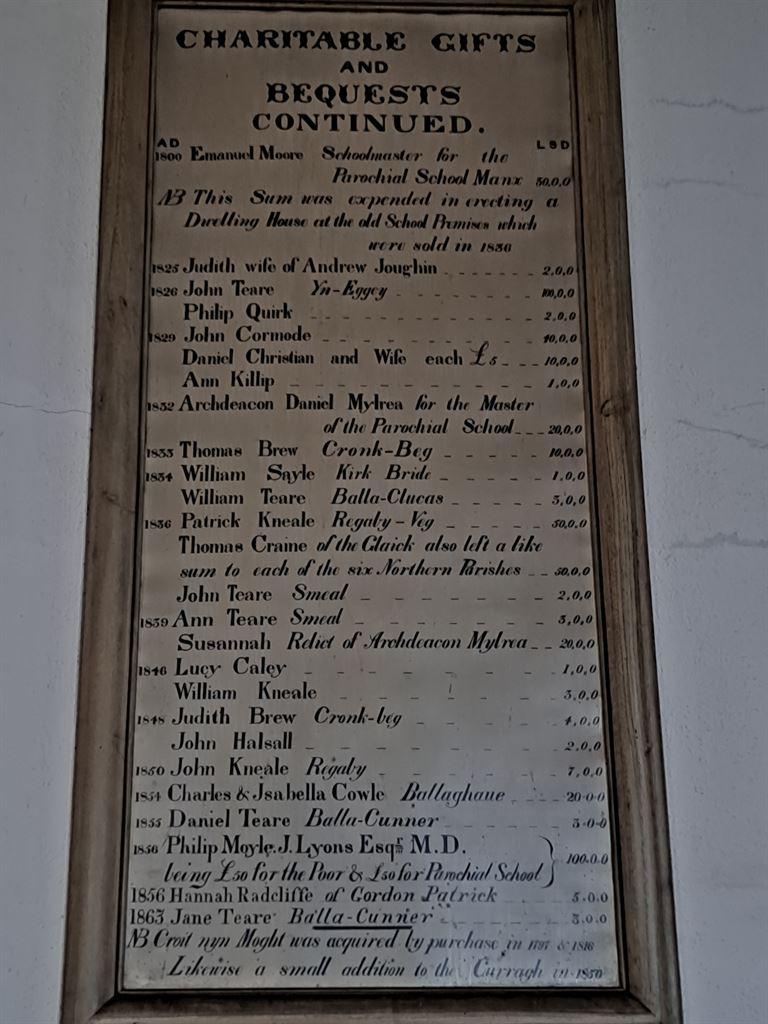 CHARITABLE GIFTS
AND
BEQUESTS
CONTINUED.
AD L S D
1800 Emanuel Moore Schoolmaster for the
Parochial School Manx 50,0,0
NB This Sum was expended in erecting a
Dwelling House at the old School Premises which
were sold in 1836
1825 Judith wife of Andrew Joughin 2,0,0
1826 John Teare Yn-Eggey 100,0,0
Philip Quirk 2,0,0
1829 John Cormode 10,0,0
Daniel Christian and Wife each £5 10,0,0
Ann Killip 1,0,0
1832 Archdeacon Daniel Mylrea for the Master
of the Parochial School 20,0,0
1833 Thomas Brew Cronk-Beg 10,0,0
1834 William Sayle Kirk Bride 1,0,0
William Teare Balla-Clucas 3,0,0
1836 Patrick Kneale Regaby-Veg 50,0,0
Thomas Craine of the Claick also left a like
sum to each of the six Northern Parishes 50,0,0
John Teare Smeal 2,0,0
1839 Ann Teare Smeal 3,0,0
Susannah Relict of Archdeacon Mylrea 20,0,0
1846 Lucy Caley 1,0,0
William Kneale 3,0,0
1848 Judith Brew Cronk-beg 4,0,0
John Halsall 2,0,0
1850 John Kneale Regaby 7,0,0
1854 Charles & Isabella Cowle Ballaghaue 20-0-0
1855 Daniel Teare Balla-Cunner 5-0-0
1856 Philip Moyle. J. Lyons Esqre M.D.
being £50 for the Poor & £50 for Parochial School } 100.0.0
1856 Hannah Radcliffe of Gordon Patrick 5.0.0
1863 Jane Teare Balla-Cunner 5.0.0
NB Croit nyn Moght was acquired by purchase in & 1816
Likewise a small addition to the Curragh in 1850